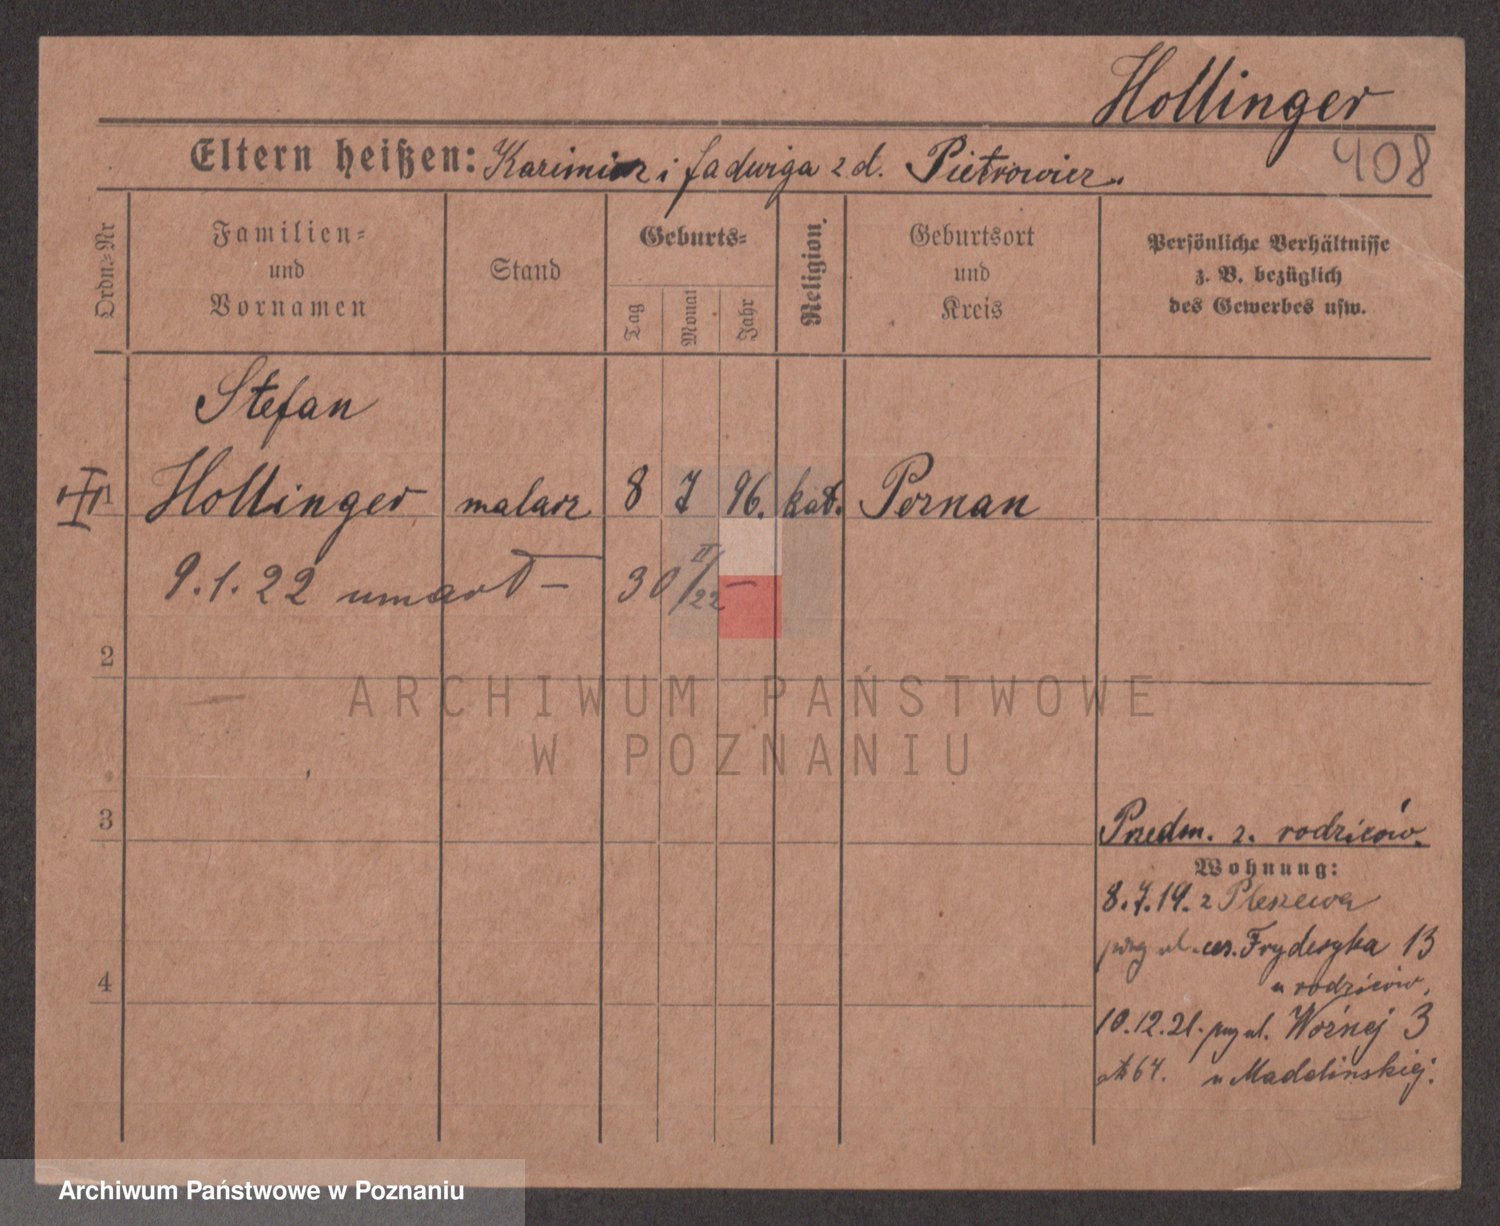 Hollinger
408
Eltern heißen: Kazimierz i Jadwiga z d. Pietrowicz.
Ordn.-Nr
Familien-
und
Vornamen
Stand
Geburts-
Tag
Monat
Jahr
Religion.
Geburtsort
und
Kreis
Persönliche Verhältnisse
z. B. bezüglich
des Gewerbes usw.
Stefan
1 Hollinger malarz 8 7 96. kat. Poznan
9.1.22 umarł – 30 II/22 –
2
ARCHIWUM PAŃSTWOWE
W POZNANIU
3
Przedm. z. rodziców.
Wohnung:
8.7.19. z Pleszewa
przy ul. ces. Fryderyka 13
u rodziców,
4
10.12.21. przy ul. Woźnej 3
64. u Madalińskiej.
Archiwum Państwowe w Poznaniu